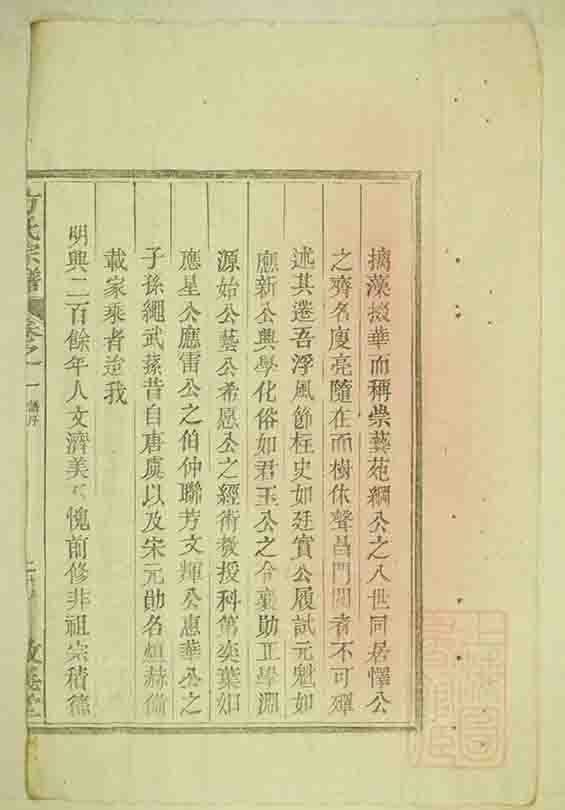 摛藻掞華而稱崇藝苑綱公之八世同居懌公
之齊名庾亮隨在而樹休聲昌門閭者不可殫
述其遷吾浮風節柱史如廷實公履試元魁如
應新公興學化俗如君玉公之令襄勛正學淵
源始公藝公希愿公之經術教授科第奕葉如
應星公應雷公之伯仲聯芳文輝公惠華公之
子孫繩武蓀昔自唐虞以及宋元勛名烜赫備
載家乘者迨我
明興二百餘年人文濟美不愧前修非祖宗積德
方氏宗譜 卷之一 譜序